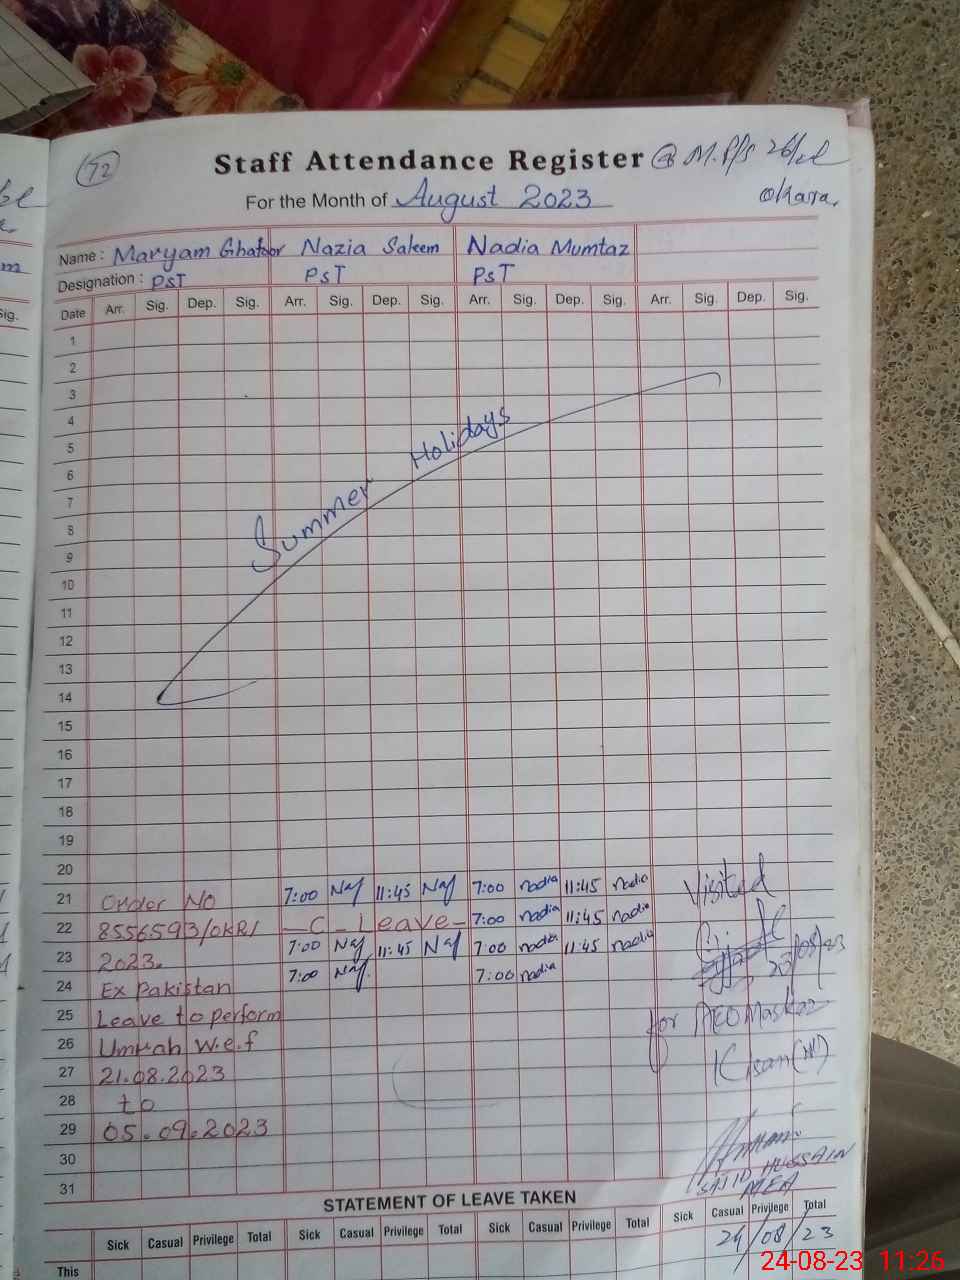 72
Staff Attendance Register @ M.P/s 26/
For the Month of August 2023 Okara.
Name : Maryam Ghafoor Nazia Saleem Nadia Mumtaz
Designation : PST PST PST
Date Arr. Sig. Dep. Sig. Arr. Sig. Dep. Sig. Arr. Sig. Dep. Sig. Arr. Sig. Dep. Sig.
1
2
3
4
5
6
7
8
9
10
11
12
13
14
Summer Holidays
15
16
17
18
19
20
21 Order No 7:00 Naz 11:45 Naz 7:00 nadia 11:45 nadia Visited
22 8556593/OKR/ - C - Leave - 7:00 nadia 11:45 nadia
23 2023. 7:00 Naz 11:45 Naz 7:00 nadia 11:45 nadia 23/08/23
24 Ex Pakistan 7:00 Naz 7:00 nadia
25 Leave to perform for AEO Markaz
26 Umrah w.e.f
27 21.08.2023 Kisan (W)
28 to
29 05.09.2023
30 SAJID HUSSAIN
31 MEA
STATEMENT OF LEAVE TAKEN
Sick Casual Privilege Total Sick Casual Privilege Total Sick Casual Privilege Total Sick Casual Privilege Total
24/08/23
This
24-08-23 11:26